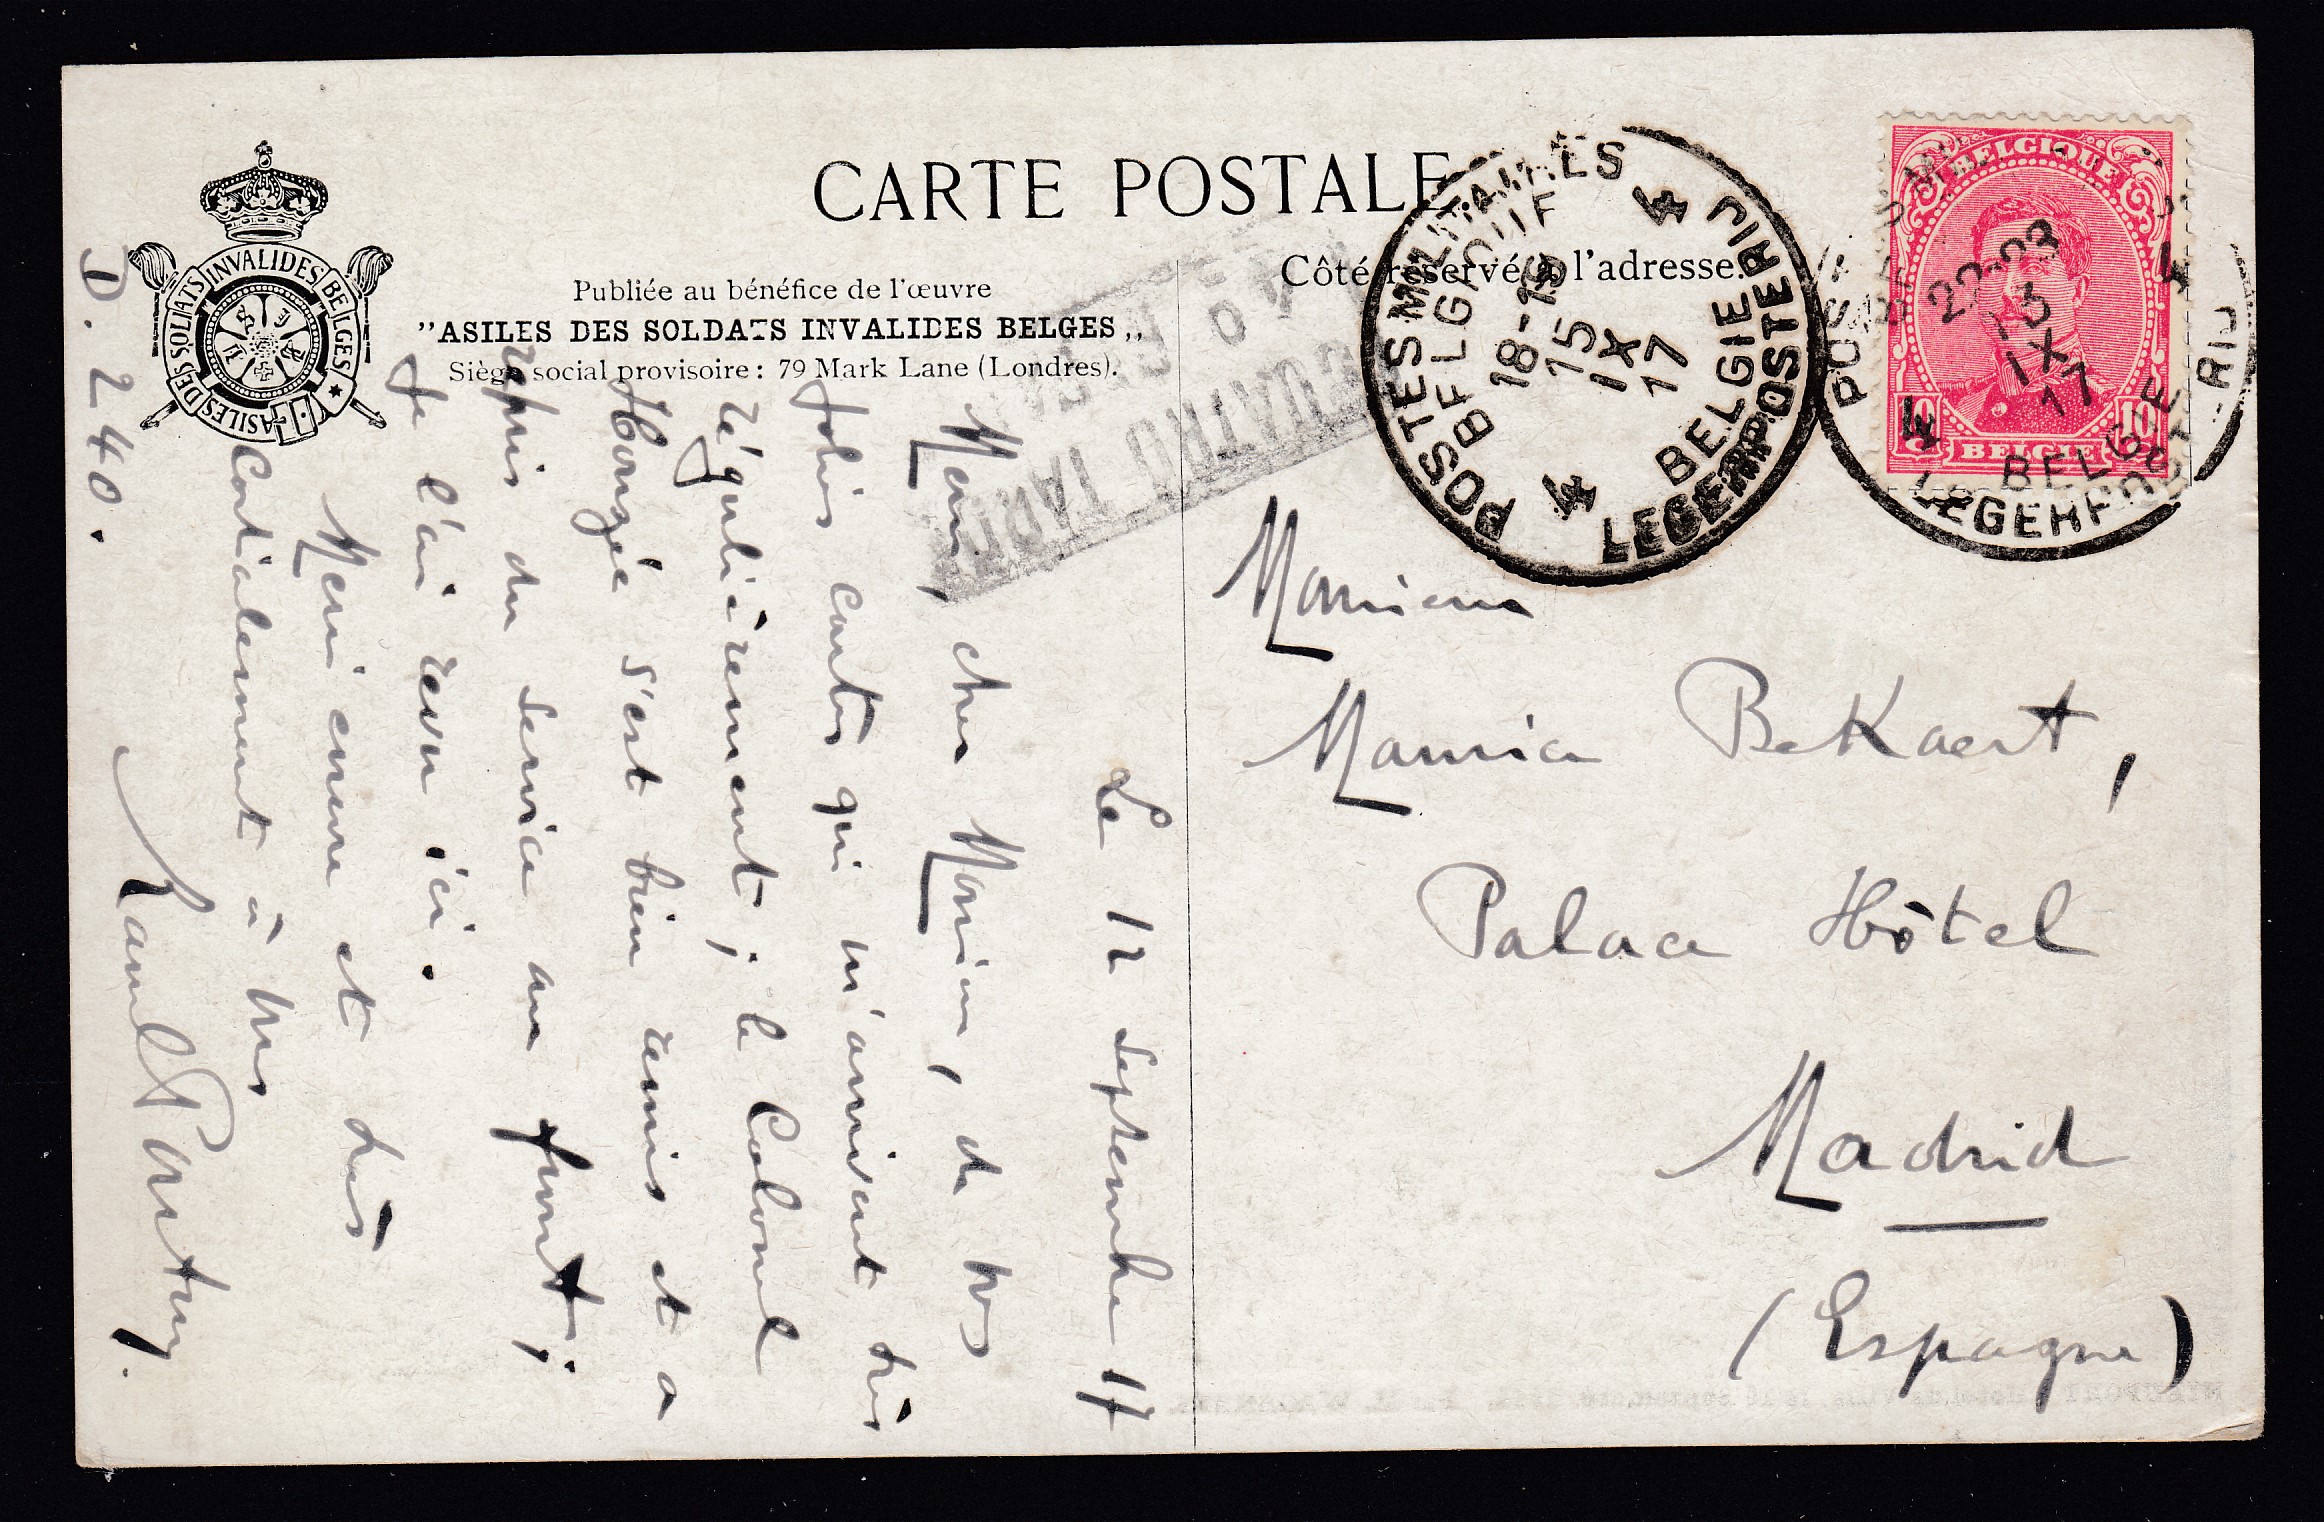 CARTE POSTALE
Publiée au bénéfice de l'œuvre
"ASILES DES SOLDATS INVALIDES BELGES „
Siège social provisoire: 79 Mark Lane (Londres).
Côté réservé à l'adresse.
ASILES DES SOLDATS INVALIDES BELGES
POSTES MILITAIRES
BELGIQUE
4
18-19
15
IX
17
4
BELGIE
LEGERPOSTERIJ
BELGIQUE
10 10
BELGIE
22-23
13
IX
17
4
4
BELGIE
Monsieur
Maurice Bekaert,
Palace Hôtel
Madrid
(Espagne)
Le 12 Septembre 17
Merci, cher Monsieur, de vos
jolies cartes qui m'arrivent très
régulièrement; le Colonel
s'est bien remis et a
repris du service au front;
Je l'ai revu ici.
Merci encore et très
Cordialement à vous
D. 240.